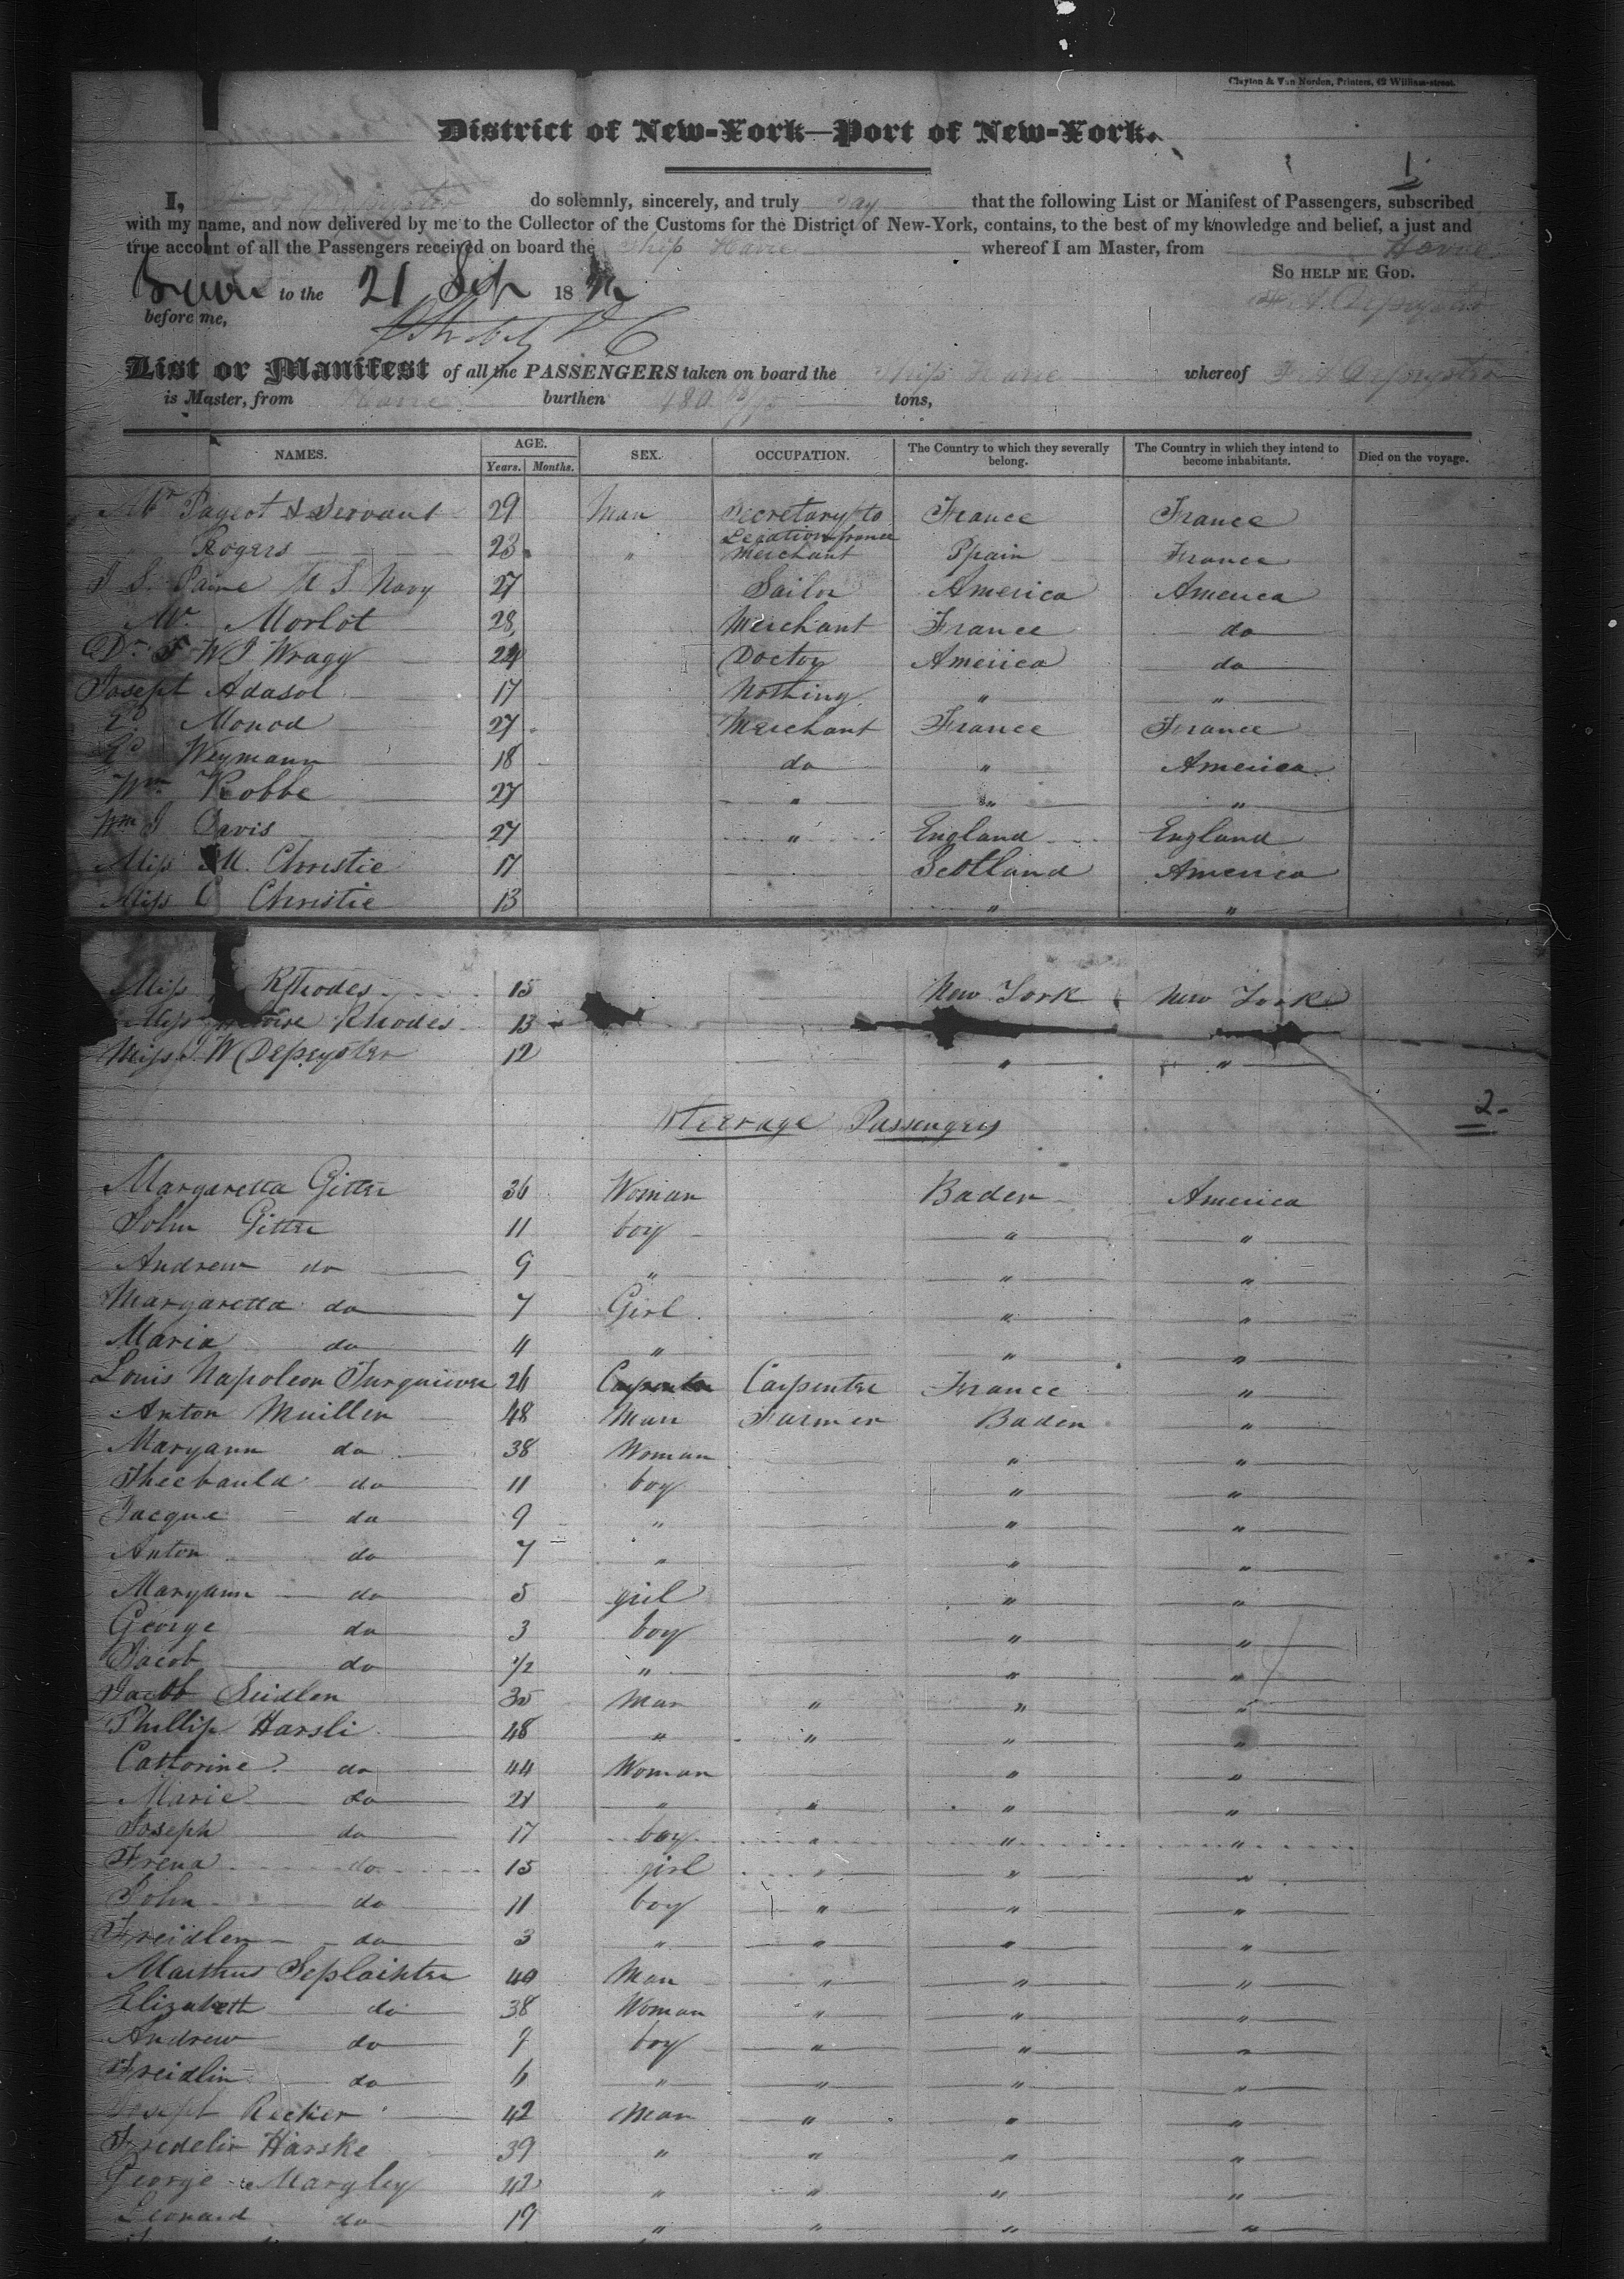 Clayton & Van Norden, Printers, 42 William-street.
District of New-York—Port of New-York.
1
I, do solemnly, sincerely, and truly say that the following List or Manifest of Passengers, subscribed
with my name, and now delivered by me to the Collector of the Customs for the District of New-York, contains, to the best of my knowledge and belief, a just and
true account of all the Passengers received on board the Ship Havre whereof I am Master, from Havre
So help me God.
to the 21 Sep 18
before me,
List or Manifest of all the PASSENGERS taken on board the Ship Havre whereof
is Master, from Havre burthen 480 tons,
NAMES. AGE. Years. Months. SEX. OCCUPATION. The Country to which they severally belong. The Country in which they intend to become inhabitants. Died on the voyage.
Mr Pageot & Servant 29 Man Secretary to Legation france France France
Rogers 23 " Merchant Spain France
J S. Paine U S Navy 27 Sailor America America
Mr Morlot 28 Merchant France do
Dr W J Wragg 24 Doctor America do
Joseph Adasol 17 Nothing " "
Ed Monod 27 Merchant France France
Gd Weymann 18 do " America
Wm Kobbe 27 " " "
Wm J Davis 27 " England England
Miss M. Christie 17 Scotland America
Miss C Christie 13 " "
Miss Rhodes 15 New York New York
Miss Rhodes 13
Miss J W Depeyster 12 " "
2
Steerage Passengers
Margaretta Gitter 36 Woman Baden America
John Gitter 11 boy " "
Andrew do 9 " " "
Margaretta do 7 Girl " "
Maria do 4 " " "
Louis Napoleon 26 Carpenter Carpenter France "
Anton Muiller 48 Man Farmer Baden "
Maryann do 38 Woman " "
Theebauld do 11 boy " "
Jacque do 9 " " "
Anton do 7 " " "
Maryann do 5 girl " "
George do 3 boy " "
Jacob do 1/2 " " "
Jacob Seidlen 35 Man " " "
Phillip Harsli 48 " " " "
Cattorine do 44 Woman " "
Marie do 21 " " " "
Joseph do 17 boy " " "
Frena do 15 girl " " "
John do 11 boy " " "
Freidlen do 3 " " " "
Marthus Seplachter 40 Man " " "
Elizabett do 38 Woman " " "
Andrew do 9 boy " " "
Freidlin do 6 " " " "
Joseph Recker 42 Man " " "
Fredelir Harske 39 " " " "
George Margley 42 " " " "
Leonard do 19 " " " "